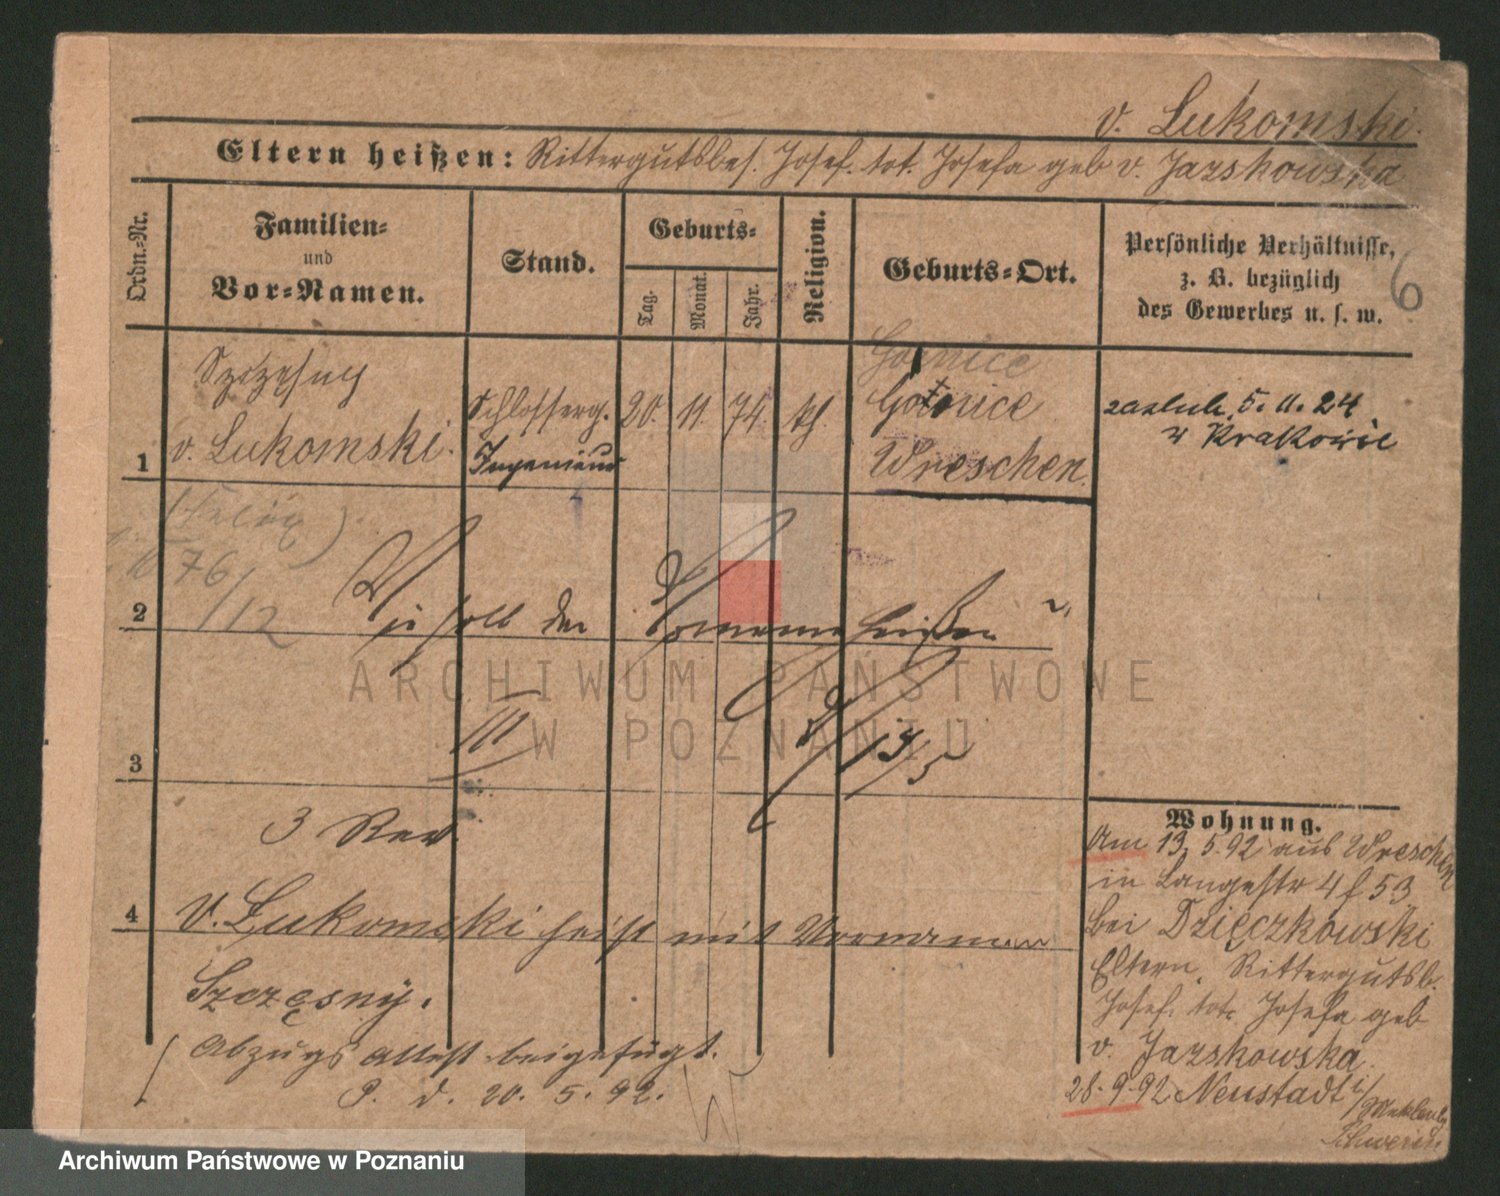 v. Lukomski.
Eltern heißen: Rittergutsbes. Josef. tot. Josefa geb v. Jazskowska
Ordn.-Nr.
Familien-
und
Vor-Namen.
Stand.
Geburts-
Tag.
Monat.
Jahr.
Religion.
Geburts-Ort.
Persönliche Verhältnisse,
z. B. bezüglich
des Gewerbes u. s. w.
6
1
Szczęsny
v. Lukomski.
Schlosserg.
Ingenieur
20. 11. 74. kth.
Gołnice
Wreschen.
5. 11. 24
w Krakowie
76/12
2
Wie soll der Vorname heißen
3
III
13/5
3 Rev.
4
v. Lukomski heißt mit Vornamen
Szczęsny.
Abzugs Attest beigefügt.
P. d. 20. 5. 92.
Wohnung.
Am 13. 5. 92 aus Wreschen
in Langestr 4 b 53
bei Dzięczkowski
Eltern. Rittergutsb.
Josef. tot. Josefa geb
v. Jazskowska.
28. 9. 92 Neustadt i/Meklenbg
Schwerin
ARCHIWUM PAŃSTWOWE
W POZNANIU
Archiwum Państwowe w Poznaniu